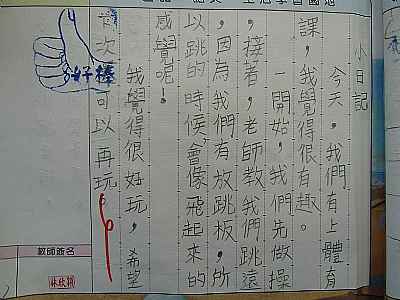 小日記
今天,我們有上體育
課,我覺得很有趣。
一開始,我們先做操
,接著,老師教我們跳遠
,因為我們有放跳板,所
以跳的時候,會像飛起來的
感覺呢!
我覺得很好玩,希望
次可以再玩。
好棒
教師簽名